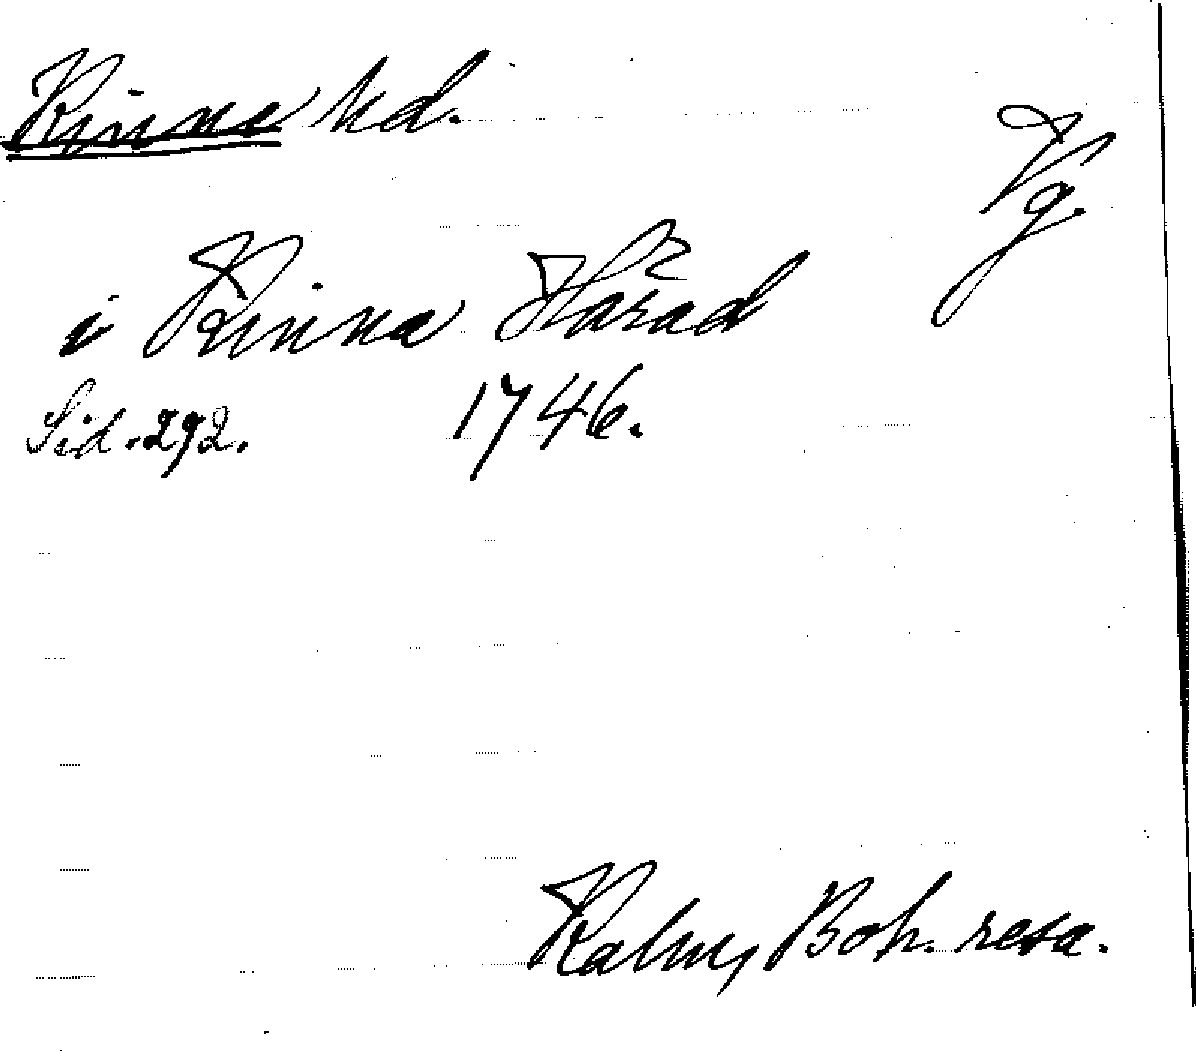 Kinne hd.
Vg.
i Kinne Härad
Sid. 292. 1746.
Kalm, Boh. resa.